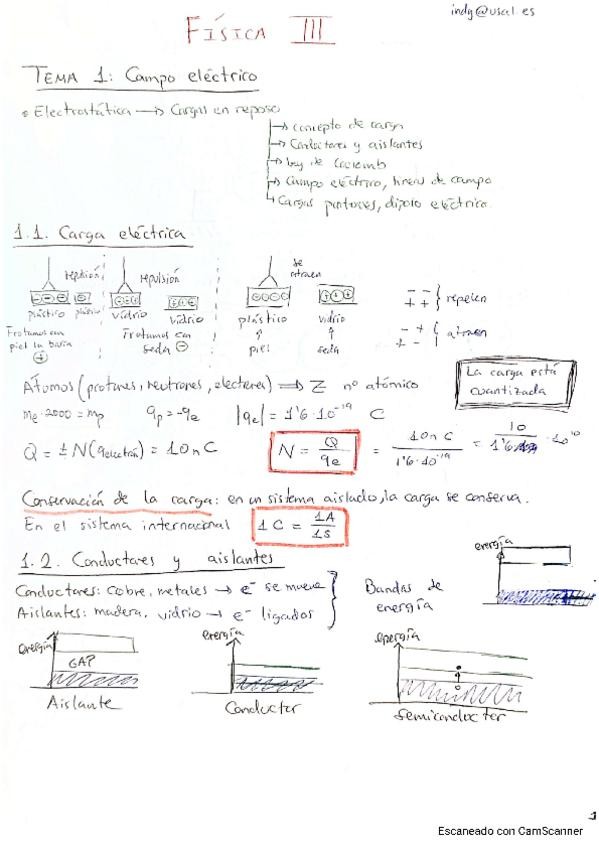 indy@usal.es
FÍSICA III
TEMA 1: Campo eléctrico
• Electrostática → Cargas en reposo
→ concepto de carga
→ Conductores y aislantes
→ Ley de Coulomb
→ Campo eléctrico, líneas de campo
→ Cargas puntuales, dipolo eléctrico.
1.1. Carga eléctrica
repulsión repulsión se atraen
plástico plástico vidrio vidrio plástico vidrio
- - + + } repelen
+ - - + } atraen
Frotamos con piel la barra +
Frotamos con seda -
piel seda
Átomos (protones, neutrones, electrones) ⇒ Z nº atómico
La carga está cuantizada
me·2000 = mp qp = -qe |qe| = 1'6·10^-19 C
Q = ± N(qelectrón) = 10 nC N = Q/qe = 10 nC / 1'6·10^-19 = 10/1'6 ·10^10
Conservación de la carga: en un sistema aislado, la carga se conserva.
En el sistema internacional 1 C = 1A/1s
1.2. Conductores y aislantes
Conductores: cobre, metales → e- se mueve
Aislantes: madera, vidrio → e- ligados
Bandas de energía
energía
energía GAP Aislante
energía Conductor
energía Semiconductor
1
Escaneado con CamScanner